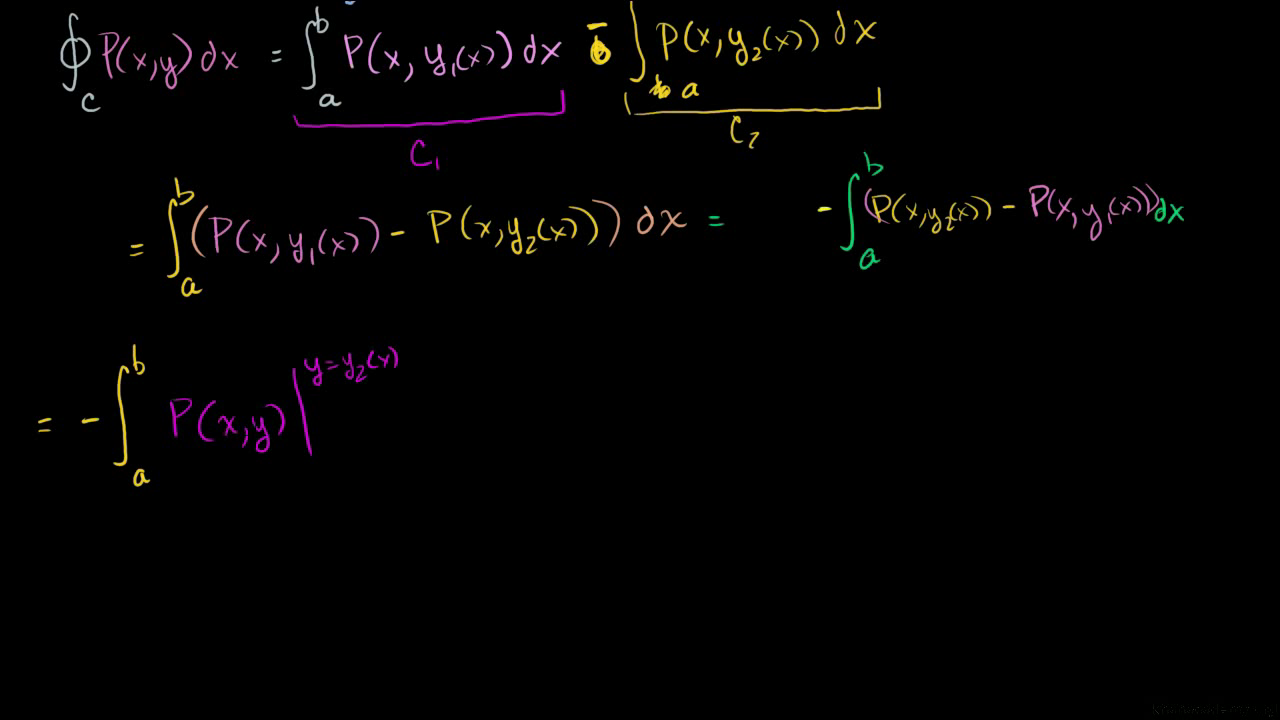 ∮_C P(x,y) dx = ∫_a^b P(x, y₁(x)) dx - ∫_a P(x, y₂(x)) dx
C₁ C₂
= ∫_a^b (P(x, y₁(x)) - P(x, y₂(x))) dx = - ∫_a^b (P(x, y₂(x)) - P(x, y₁(x))) dx
= - ∫_a^b P(x,y) |^{y=y₂(x)}